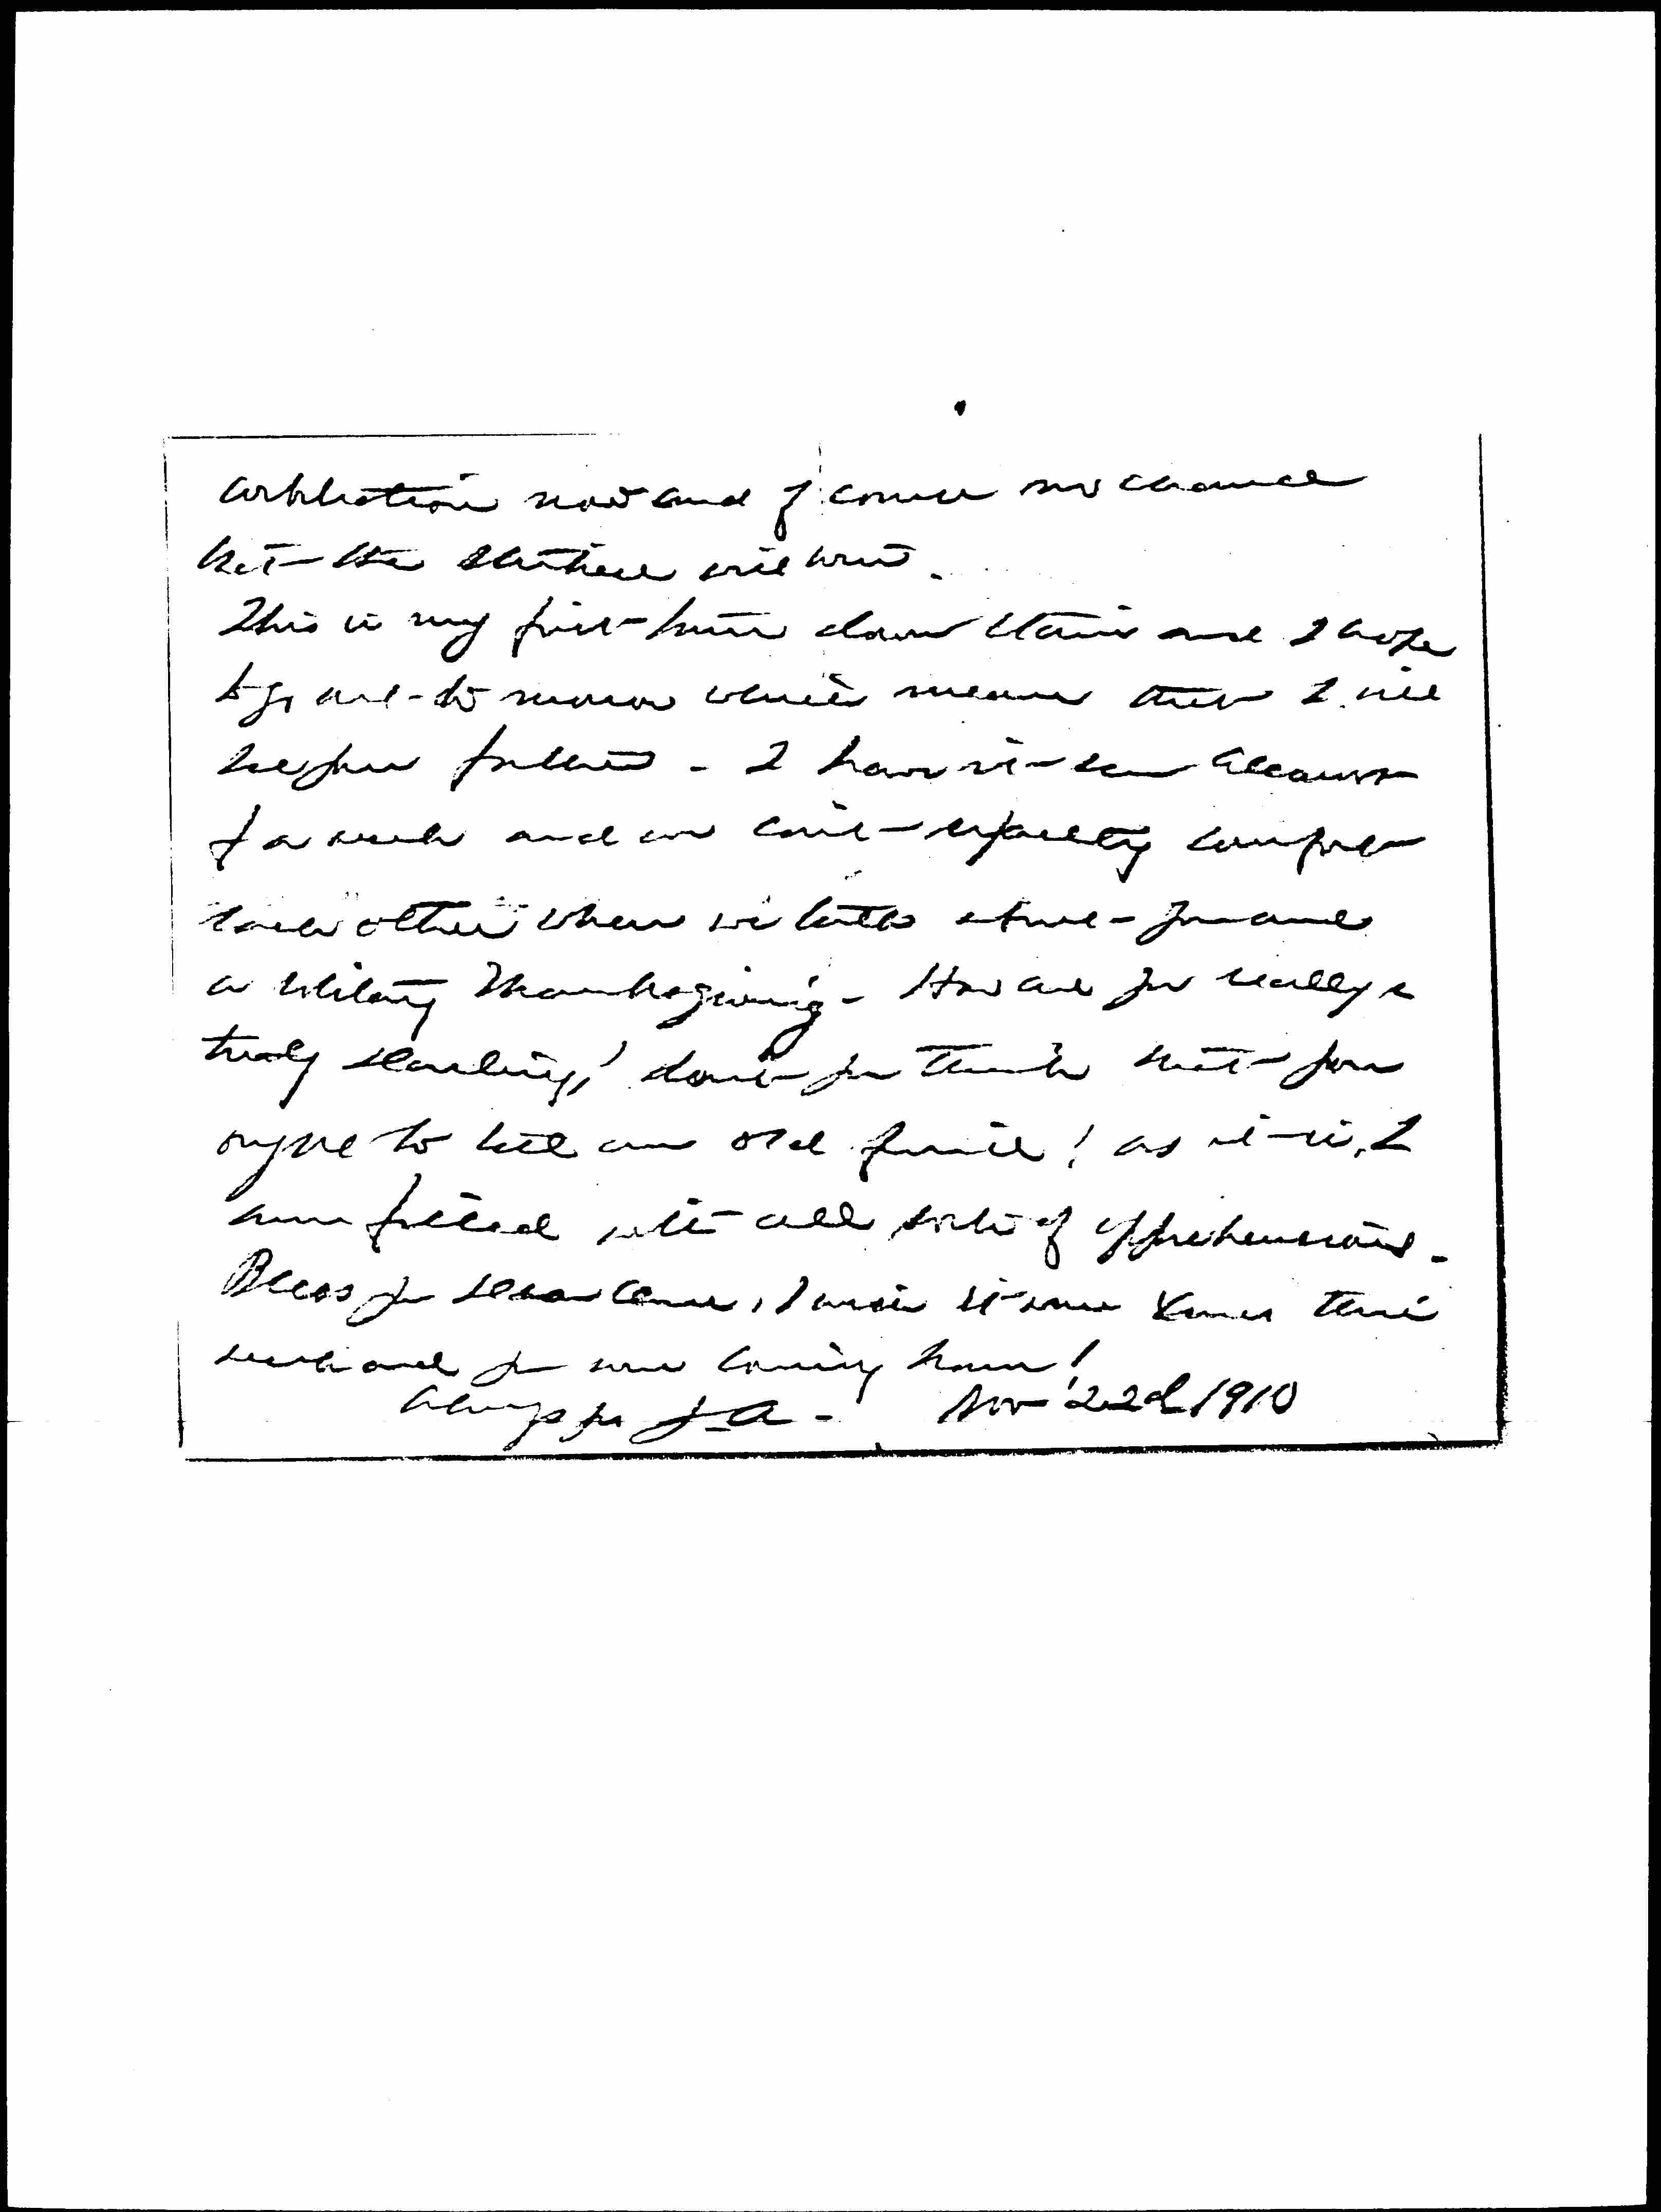 arbitration now and of course no chance
but the strikers will win.
This is my first hour down stairs and I hope
to go out to-morrow which means that I will
be Jane's patient - I haven't seen
for a week and we can't expectly comfort
each other when we both
a solitary Thanksgiving - How are you really &
truly darling, don't you think that you
ought to tell an old friend! as it is, I
am filled with all sorts of apprehensions.
Bless you dear, I wish it were Xmas this
week and you were coming home!
Always yr J.A. - Nov 22d 1910